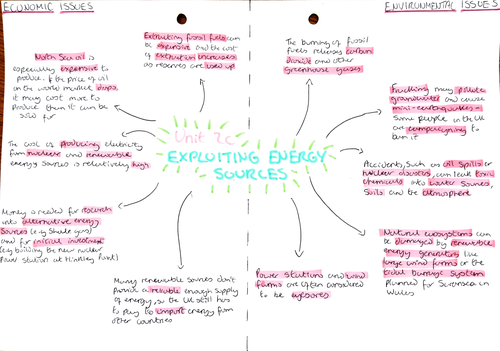 ECONOMIC ISSUES
North Sea oil is
especially expensive to
produce. If the price of oil
on the world market drops,
it may cost more to
produce them it can be
sold for
Extracting fossil fuels can
be expensive and the cost
of extraction increases
as reserves are used up
The cost of producing electricity
from nuclear and renewable
energy sources is relatively high
Money is needed for research
into alternative energy
Sources (e.g shale gas)
and for initial investment
(e.g building the new nuclear
Power station at Hinkley Point)
Many renewable sources don't
Provide a reliable enough supply
of energy, so the UK still has
to pay to import energy from
other countries
Unit 2c
EXPLOITING ENERGY
SOURCES
ENVIRONMENTAL ISSUES
The burning of fossil
fuels releases carbon
dioxide and other
greenhouse gases
Fracking may pollute
groundwater and cause
mini-earthquakes -
Some people in the UK
are campaigning to
ban it
Accidents, such as oil spills or
nuclear disasters, can leak toxic
chemicals into water sources,
Soils and the atmosphere
Natural ecosystems can
be damaged by renewable
energy generators like
large wind farms or the
tidal barrage system
planned for Swansea in
Wales
Power stations and wind
farms are often considered
to be eyesores